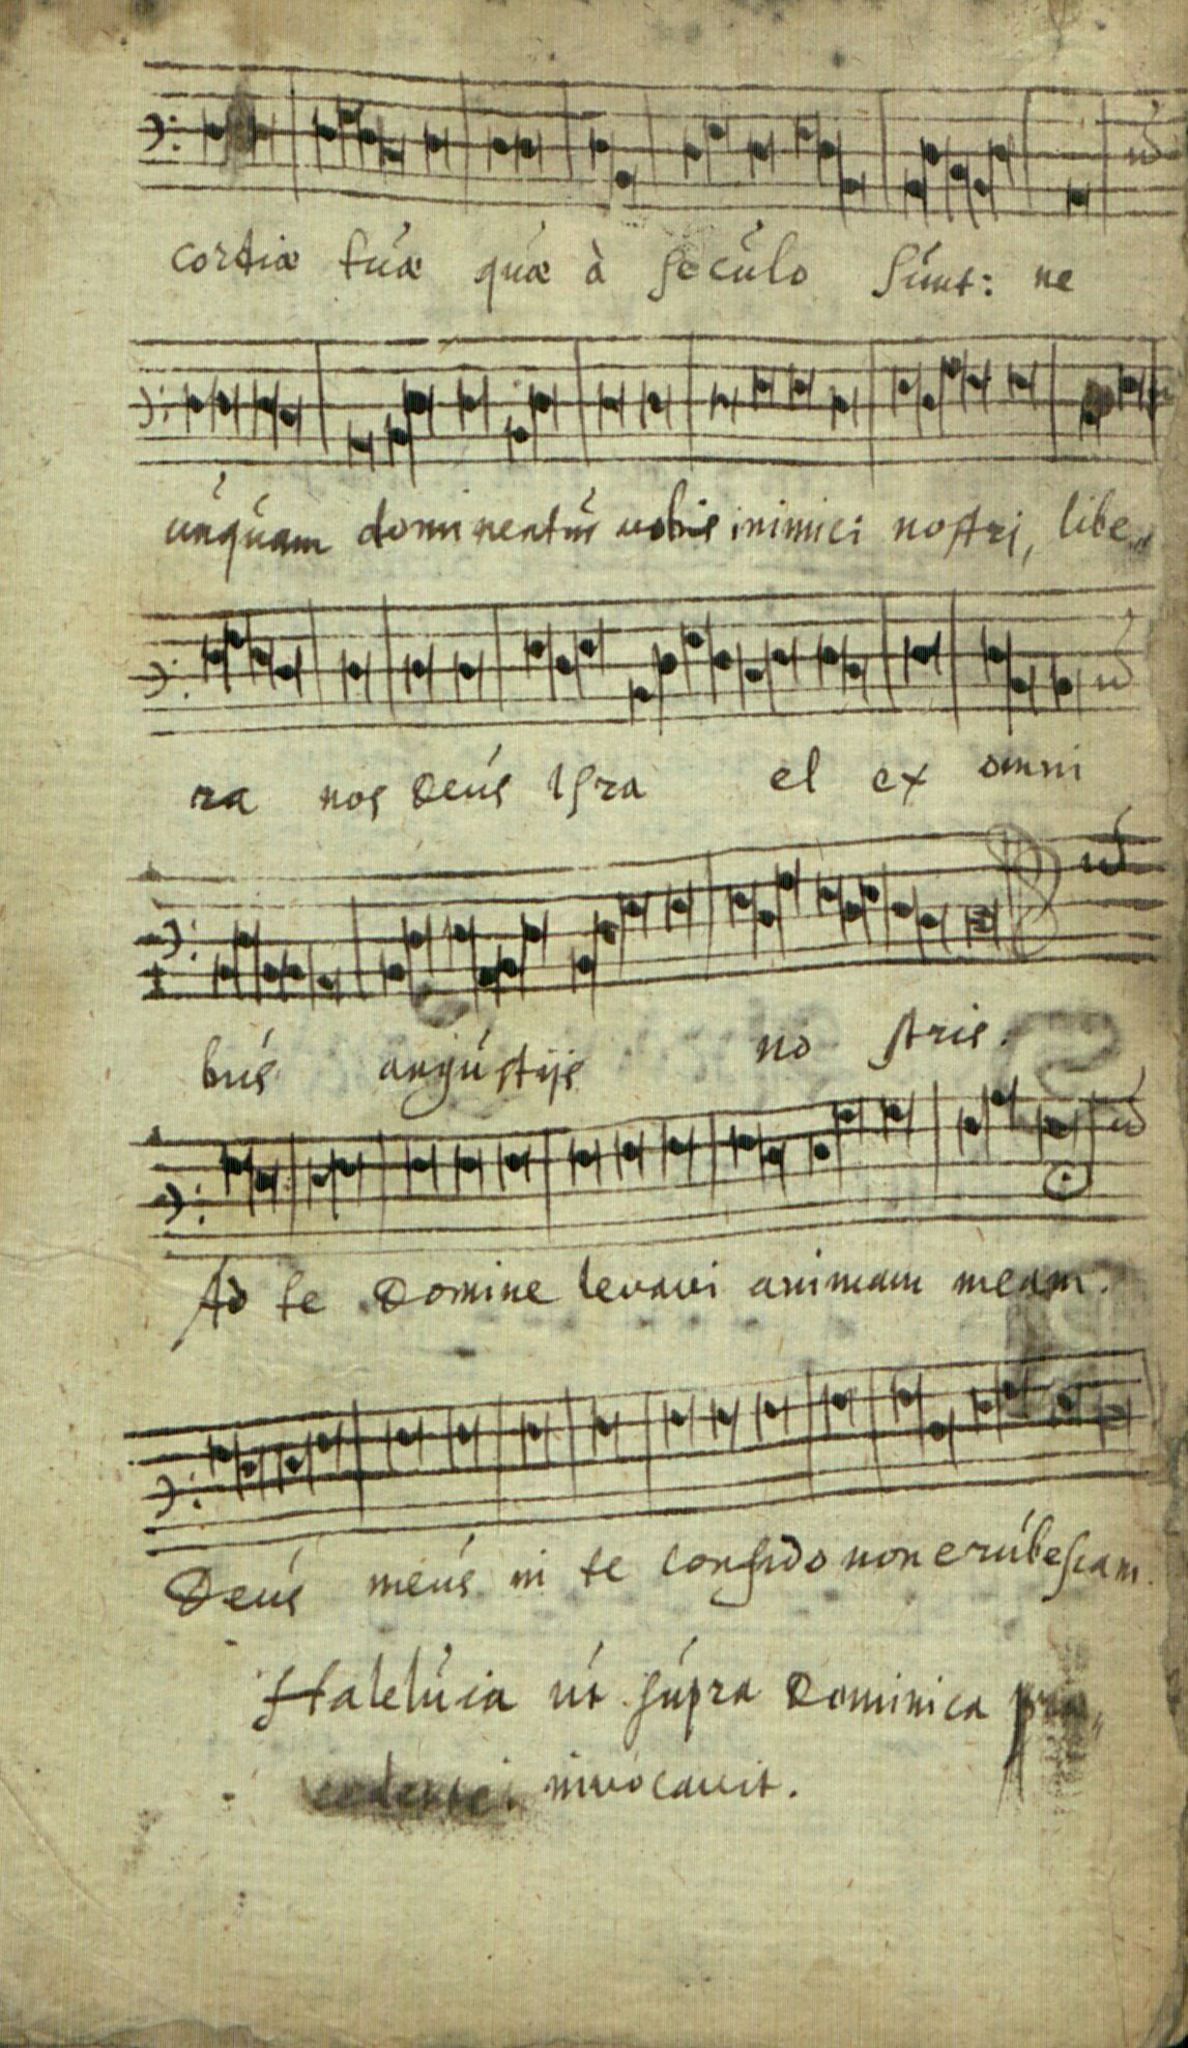 cordiæ tuæ quæ à seculo sunt: ne
unquam dominentur nobis inimici nostri, libe„
ra nos Deus Isra el ex omni
bus angustijs no stris.
Ad te Domine levavi animam meam.
Deus meus in te confido non erubescam.
Haleluia ut supra Dominica
invocavit.